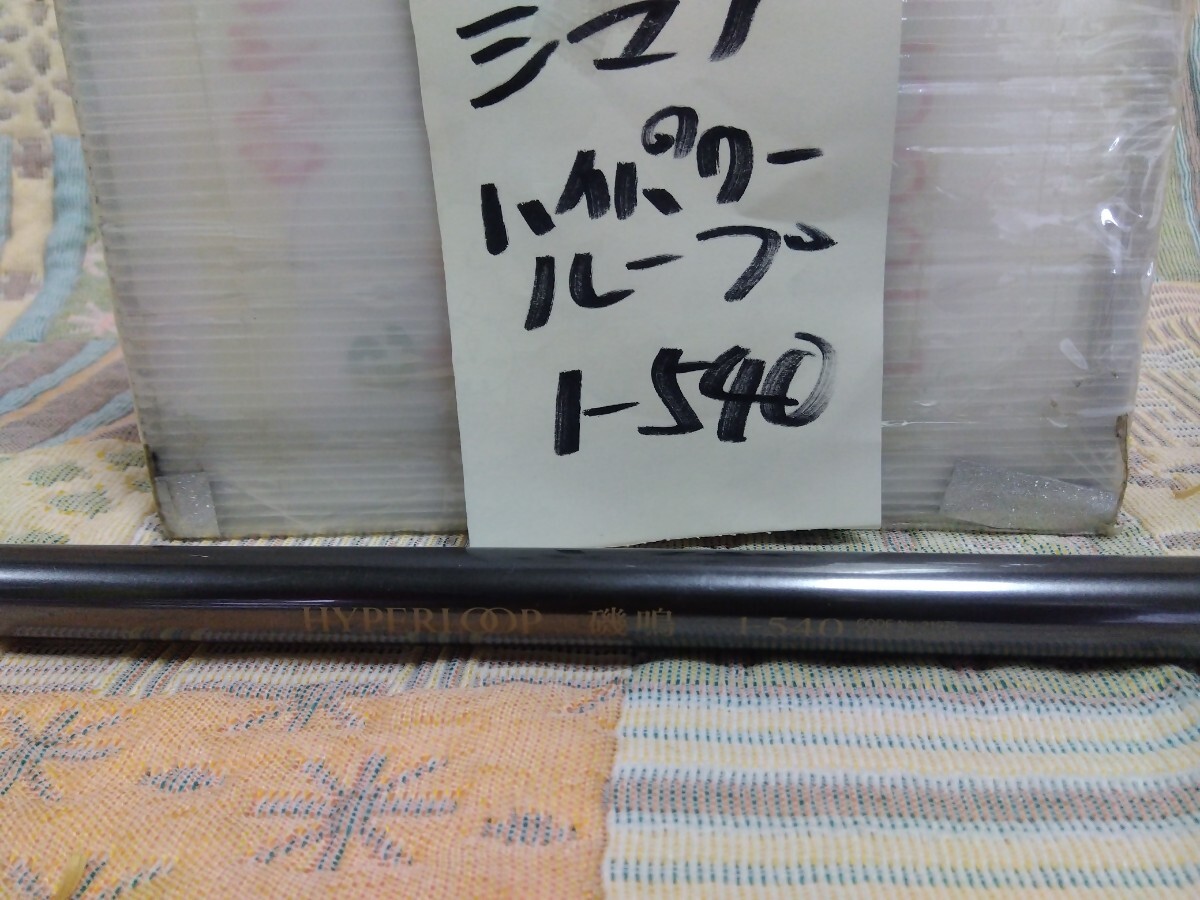 シマノ
ハイパワー
ループ
1-540
HYPERLOOP 磯鳴 1-540